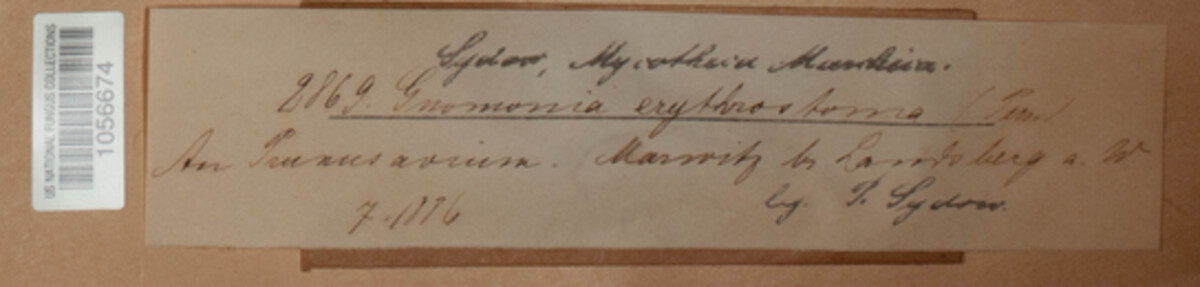 US NATIONAL FUNGUS COLLECTIONS
1056674
Sydow, Mycotheca Marchica.
2869. Gnomonia erythrostoma (Pers)
An Prunus avium. Marwitz b Landsberg a. W
7. 1886
leg. P. Sydow.